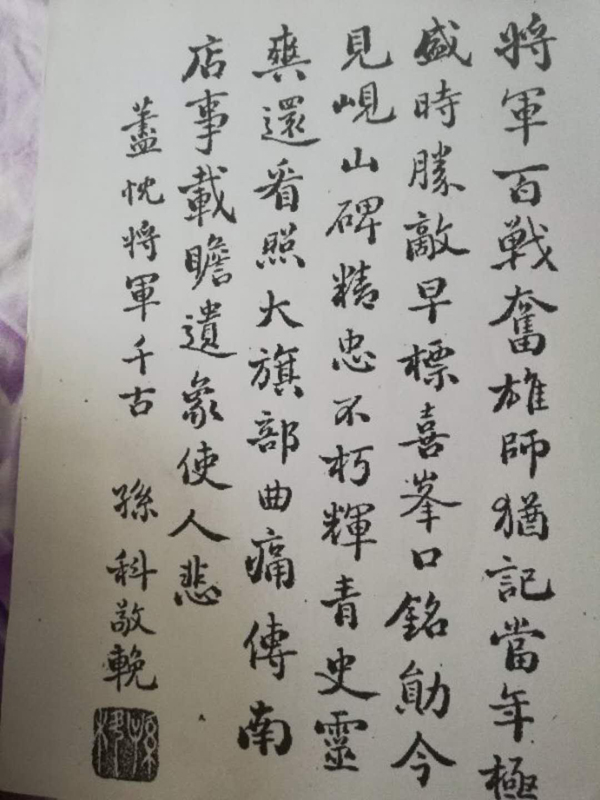 將軍百戰奮雄師猶記當年極
盛時勝敵早標喜峯口銘勛今
見峴山碑精忠不朽輝青史靈
爽還看照大旗部曲痛傳南
店事載瞻遺象使人悲
藎忱將軍千古
孫科敬輓
孫科